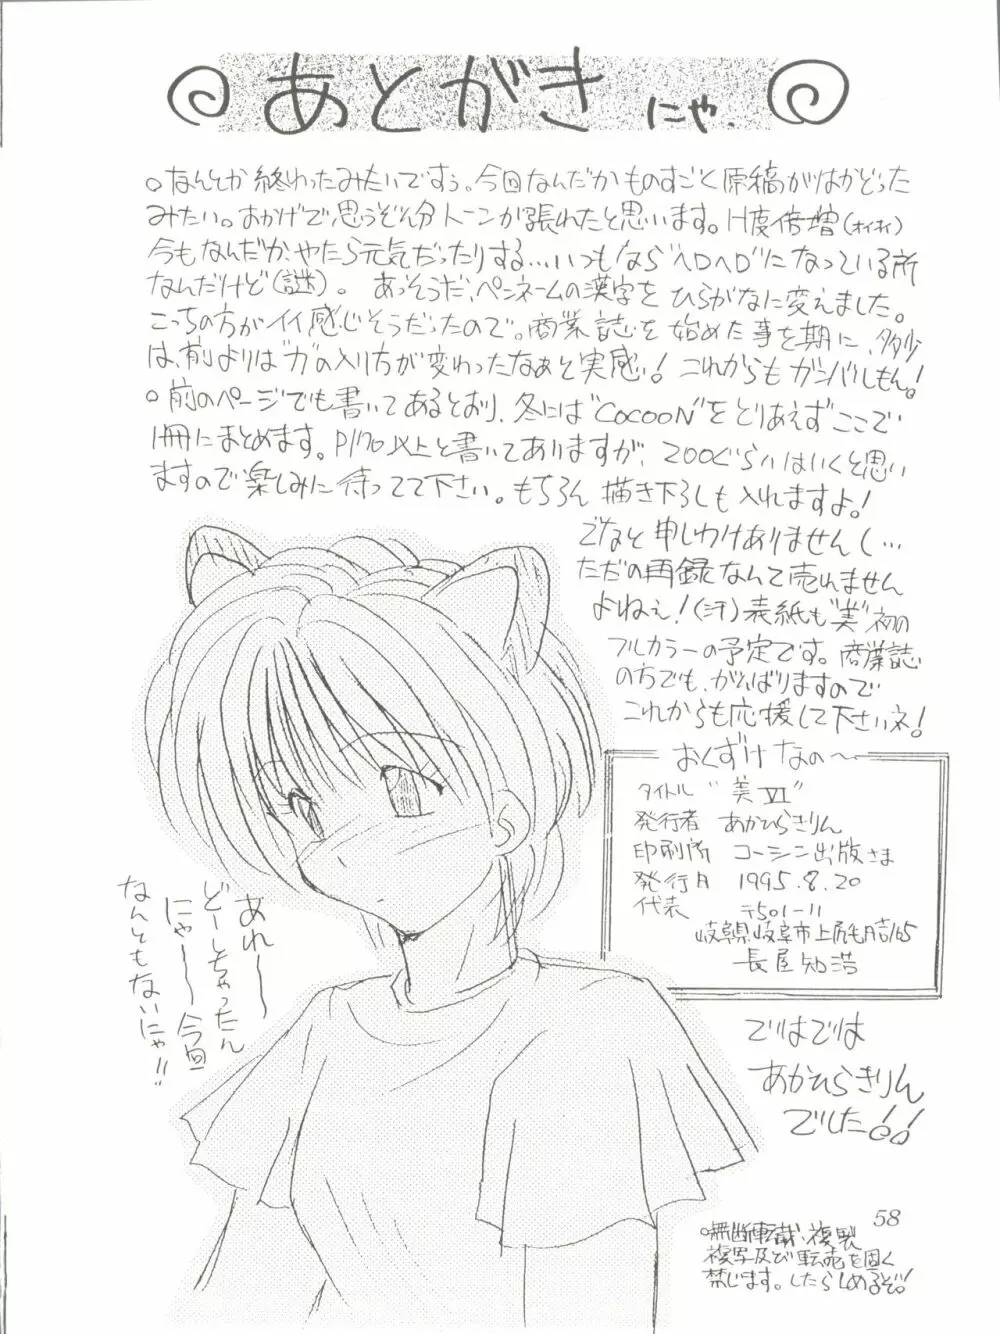 あとがき にゃ.
○なんとか終わったみたいですぅ。今回なんだかものすごく原稿がはかどった
みたい。おかげで思うぞんぶんトーンが張れたと思います。H度倍増(オイオイ)
今もなんだか、やたら元気だったりする…いつもなら"ヘロヘロ"になっている所
なんだけど(謎)。 あっそうだ、ペンネームの漢字をひらがなに変えました。
こっちの方がイイ感じそうだったので。商業誌を始めた事を期に、多少
は、前よりは"力"の入り方が変わったなぁと実感!これからもガンバルしもん!
○前のページでも書いてあるとおり、冬には"COCOON"をとりあえずここで
1冊にまとめます。P170以上と書いてありますが、200ぐらいはいくと思い
ますので楽しみに待ってて下さい。もちろん描き下ろしも入れますよ!
でなと申しわけありませんし…
ただの再録なんて売れません
よねぇ!(汗)表紙も"美"初の
フルカラーの予定です。商業誌
の方でも、がんばりますので
これからも応援して下さいネ!
おくずけなの〜
タイトル "美Ⅵ"
発行者 あかひらきりん
印刷所 コーシン出版さま
発行日 1995.8.20
代表 〒501-11
岐阜県岐阜市上尻毛日吉165
長屋知浩
あれ〜
どーしちゃったん
にゃ〜今回
なんともないにゃ!!
ではでは
あかひらきりん
でした!!
58
○無断転載・複製
複写及び転売を固く
禁じます。したらしめるぞ!